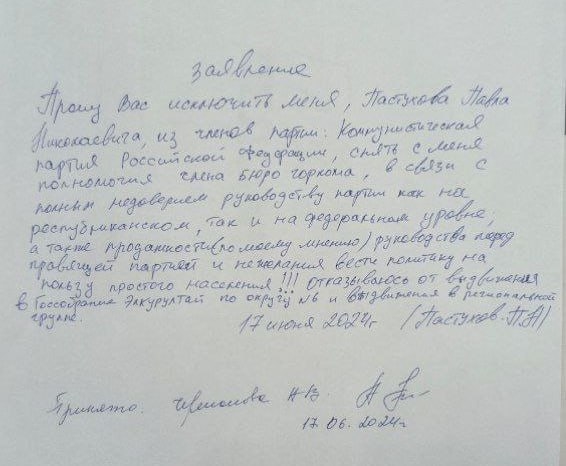 Заявление
Прошу Вас исключить меня, Пастухова Павла
Николаевича, из членов партии: Коммунистическая
партия Российской Федерации, снять с меня
полномочия члена Бюро горкома, в связи с
полным недоверием руководству партии как на
республиканском, так и на федеральном уровне,
а также проданности (по моему мнению) руководства перед
правящей партией и нежелания вести политику на
пользу простого населения!!! Отказываюсь от выдвижения
в Госсобрание Элкурултай по округу №6 и выдвижения в региональной
группе.
17 июня 2024г /Пастухов П.Н/
Принято. А.В.
17.06.2024г